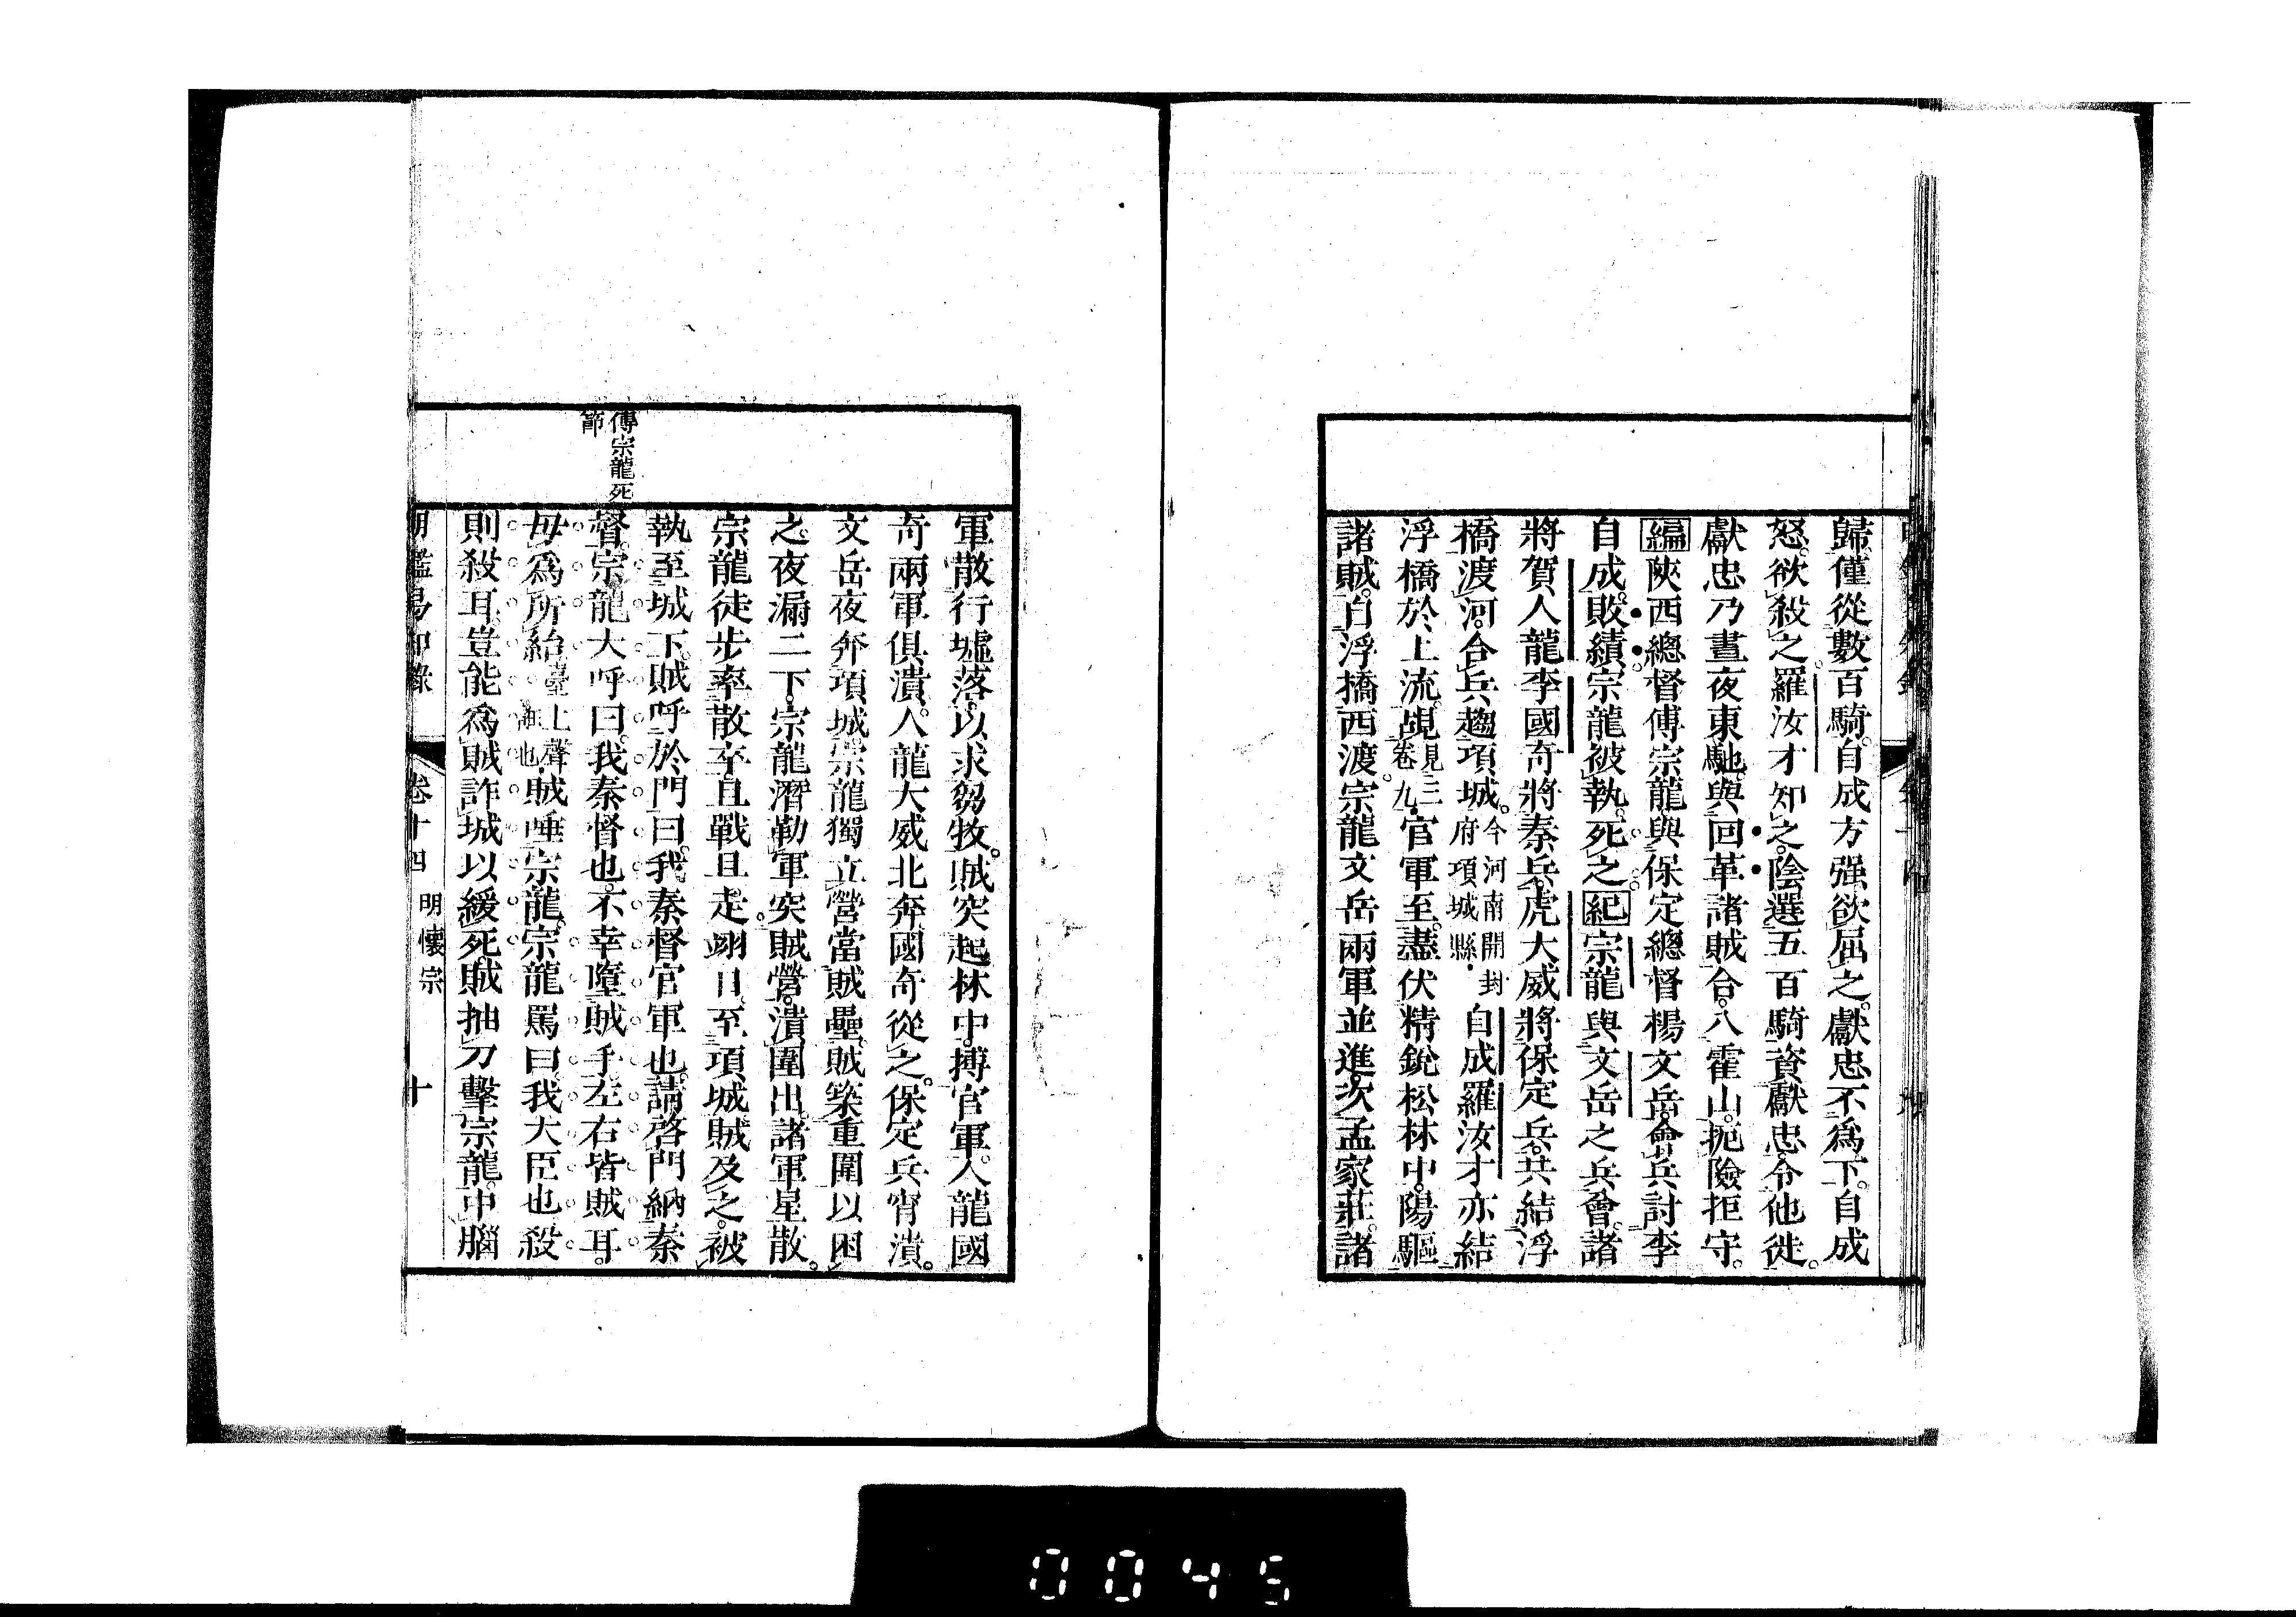 歸。僅從數百騎。自成方强欲屈之。獻忠不爲下。自成
怒。欲殺之。羅汝才知之。陰選五百騎資獻忠。令他徙。
獻忠乃晝夜東馳。與回革諸賊合。入霍山。扼險拒守。
編陝西總督傅宗龍與保定總督楊文岳會兵討李
自成。敗績。宗龍被執。死之。紀宗龍與文岳之兵會。諸
將賀人龍李國奇將秦兵。虎大威將保定兵。共結浮
橋渡河。合兵趨項城。今河南開封府項城縣。自成羅汝才亦結
浮橋於上流。覘見三卷九。官軍至。盡伏精銳松林中。陽驅
諸賊。自浮橋西渡。宗龍文岳兩軍並進。次孟家莊。諸
軍散行墟落。以求芻牧。賊突起林中。搏官軍。人龍國
奇兩軍俱潰。人龍大威北奔。國奇從之。保定兵宵潰。
文岳夜奔項城。宗龍獨立營當賊壘。賊築重圍以困
之。夜漏二下。宗龍潛勒軍突賊營。潰圍出。諸軍星散。
宗龍徒步率散卒。且戰且走。翊日。至項城。賊及之。被
傅宗龍死
節
執至城下。賊呼於門曰。我秦督官軍也。請啓門納秦
督。宗龍大呼曰。我秦督也。不幸墮賊手。左右皆賊耳。
毋爲所紿。臺上聲也。賊唾宗龍。宗龍罵曰。我大臣也。殺
則殺耳。豈能爲賊詐城以緩死。賊抽刀擊宗龍。中腦
明鑑易知錄 卷十四 明懷宗 十
0045